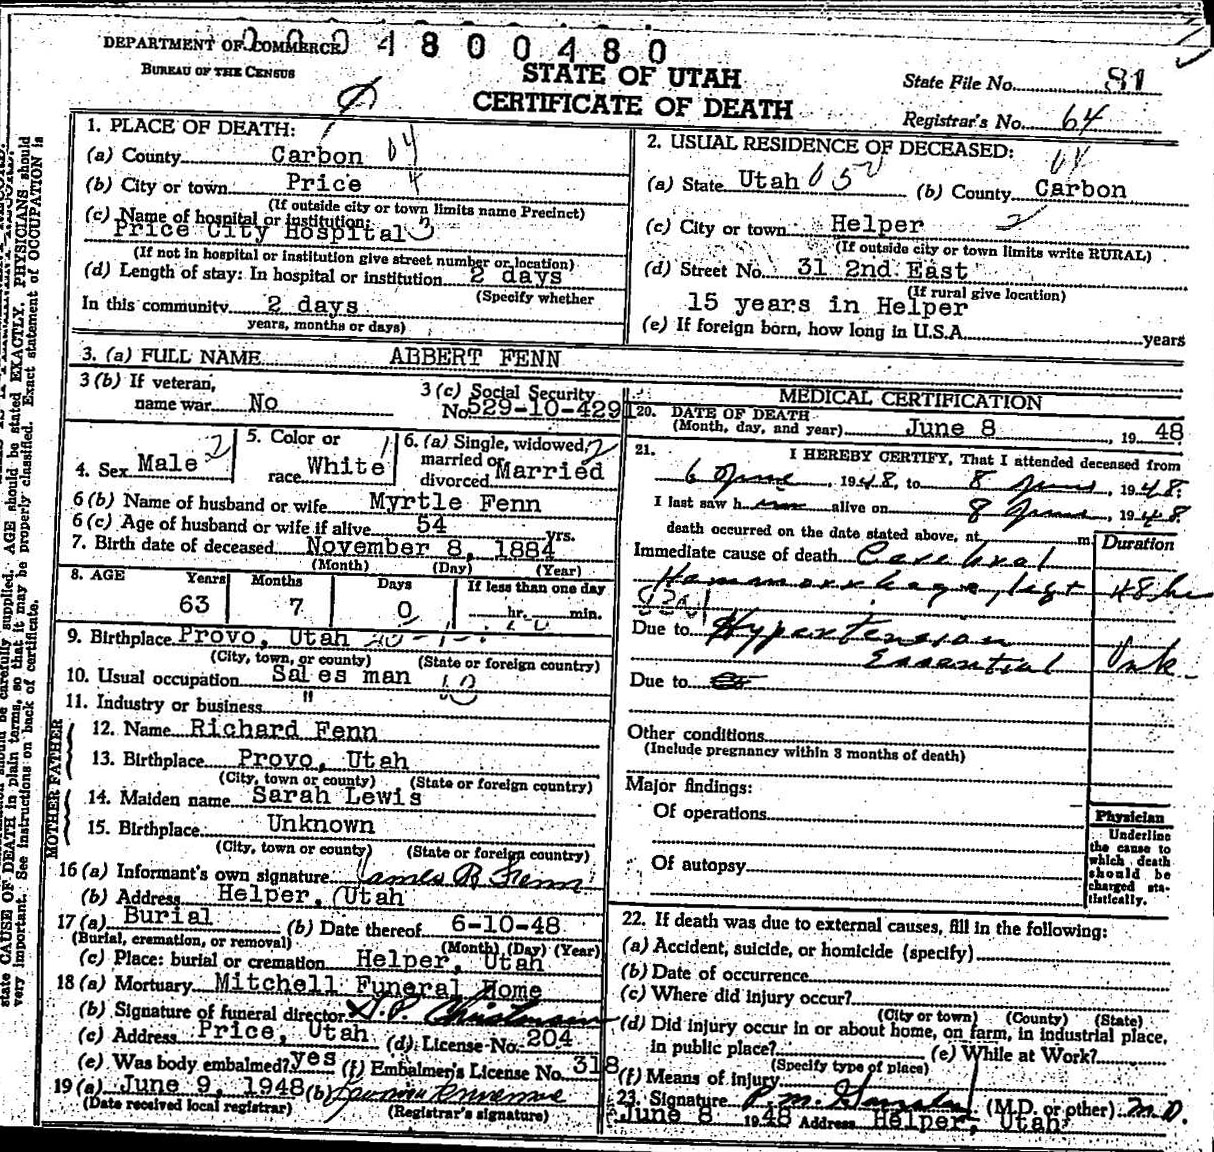 DEPARTMENT OF COMMERCE
BUREAU OF THE CENSUS
0004800480
STATE OF UTAH
CERTIFICATE OF DEATH
State File No. 81
Registrar's No. 64
1. PLACE OF DEATH:
(a) County Carbon 04
(b) City or town Price 4
(If outside city or town limits name Precinct)
(c) Name of hospital or institution:
Price City Hospital 3
(If not in hospital or institution give street number or location)
(d) Length of stay: In hospital or institution 2 days
(Specify whether
In this community 2 days
years, months or days)
2. USUAL RESIDENCE OF DECEASED:
(a) State Utah 05 (b) County Carbon 04
(c) City or town Helper 2
(If outside city or town limits write RURAL)
(d) Street No. 31 2nd East
(If rural give location)
15 years in Helper
(e) If foreign born, how long in U.S.A. years
3. (a) FULL NAME ABBERT FENN
3 (b) If veteran,
name war No
3 (c) Social Security
No. 529-10-4291
4. Sex Male 2
5. Color or
race White 1
6. (a) Single, widowed, 2
married or
divorced Married
6 (b) Name of husband or wife Myrtle Fenn
6 (c) Age of husband or wife if alive 54 yrs.
7. Birth date of deceased November 8, 1884
(Month) (Day) (Year)
8. AGE Years Months Days If less than one day
63 7 0 hr. min.
9. Birthplace Provo, Utah
(City, town, or county) (State or foreign country)
10. Usual occupation Sales man
11. Industry or business "
FATHER
12. Name Richard Fenn
13. Birthplace Provo, Utah
(City, town or county) (State or foreign country)
MOTHER
14. Maiden name Sarah Lewis
15. Birthplace Unknown
(City, town or county) (State or foreign country)
16 (a) Informant's own signature James R Fenn
(b) Address Helper, Utah
17 (a) Burial (b) Date thereof 6-10-48
(Burial, cremation, or removal) (Month) (Day) (Year)
(c) Place: burial or cremation Helper, Utah
18 (a) Mortuary Mitchell Funeral Home
(b) Signature of funeral director
(c) Address Price, Utah (d) License No. 204
(e) Was body embalmed? yes (f) Embalmer's License No. 318
19 (a) June 9, 1948 (b)
(Date received local registrar) (Registrar's signature)
MEDICAL CERTIFICATION
20. DATE OF DEATH
(Month, day, and year) June 8, 1948
21. I HEREBY CERTIFY, That I attended deceased from
6 June, 1948, to 8 June, 1948.
I last saw him alive on 8 June, 1948
death occurred on the date stated above, at m.
Duration
Immediate cause of death Cerebral
Hammorrhage, left 48 hr
Due to Hypertension
Essential Unk.
Due to
Other conditions
(Include pregnancy within 3 months of death)
Major findings:
Of operations
Of autopsy
Physician
Underline
the cause to
which death
should be
charged sta-
tistically.
22. If death was due to external causes, fill in the following:
(a) Accident, suicide, or homicide (specify)
(b) Date of occurrence
(c) Where did injury occur?
(City or town) (County) (State)
(d) Did injury occur in or about home, on farm, in industrial place,
in public place? (e) While at Work?
(Specify type of place)
(f) Means of injury
23. Signature (M.D. or other) M.D.
June 8 1948 Address Helper, Utah
AGE should be stated EXACTLY. PHYSICIANS should
state CAUSE OF DEATH in plain terms, so that it may be properly classified. Exact statement of OCCUPATION is
very important. See instructions on back of certificate.